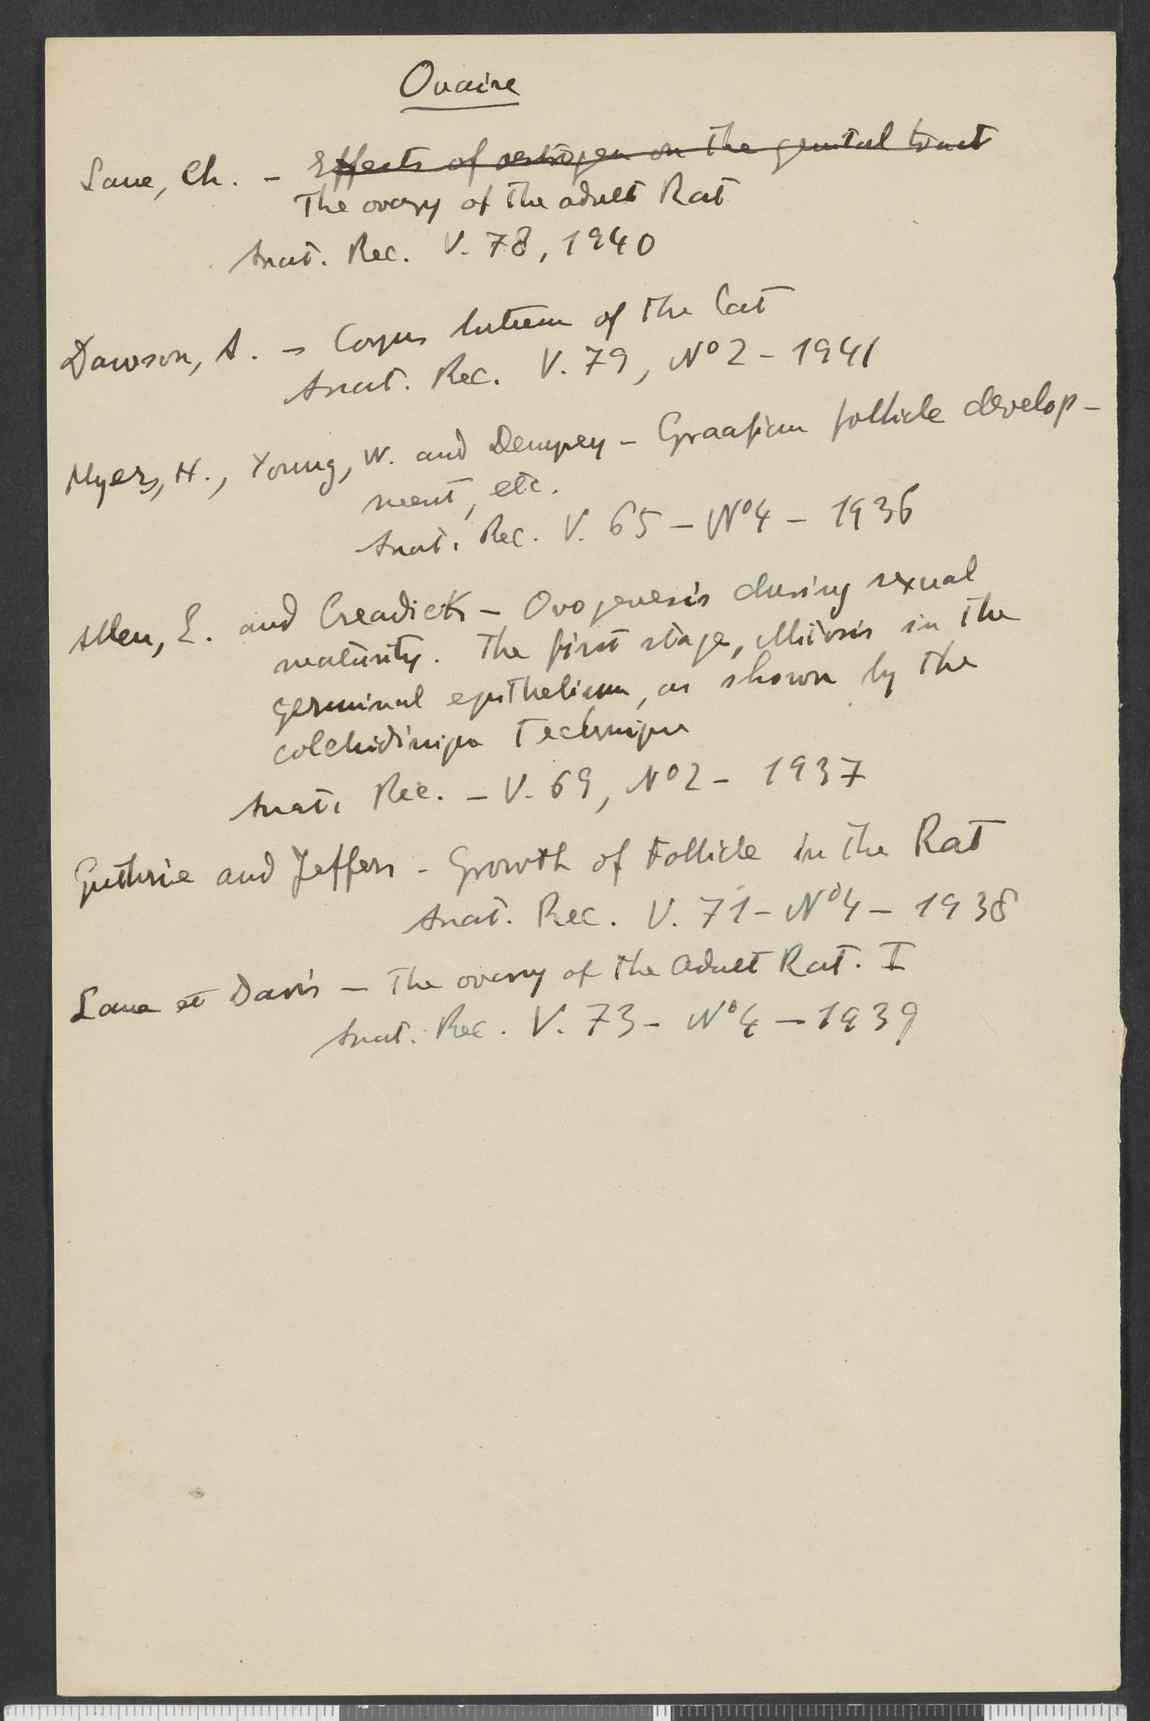 Ovaire
Lane, Ch. - Effects of oestrogen on the genital tract
The ovary of the adult Rat
Anat. Rec. V. 78, 1940
Dawson, A. - Corpus luteum of the Cat
Anat. Rec. V. 79, Nº2 - 1941
Myers, H., Young, W. and Dempsey - Graafian follicle develop-
ment, etc.
Anat. Rec. V. 65 - Nº4 - 1936
Allen, E. and Creadick - Ovogenesis during sexual
maturity. The first stage, Mitosis in the
germinal epithelium, as shown by the
Technique
Anat. Rec. - V. 69, Nº2 - 1937
Guthrie and Jeffers - Growth of Follicle in the Rat
Anat. Rec. V. 71 - Nº4 - 1938
Lane et Davis - The ovary of the Adult Rat. I
Anat. Rec. V. 73 - Nº4 - 1939